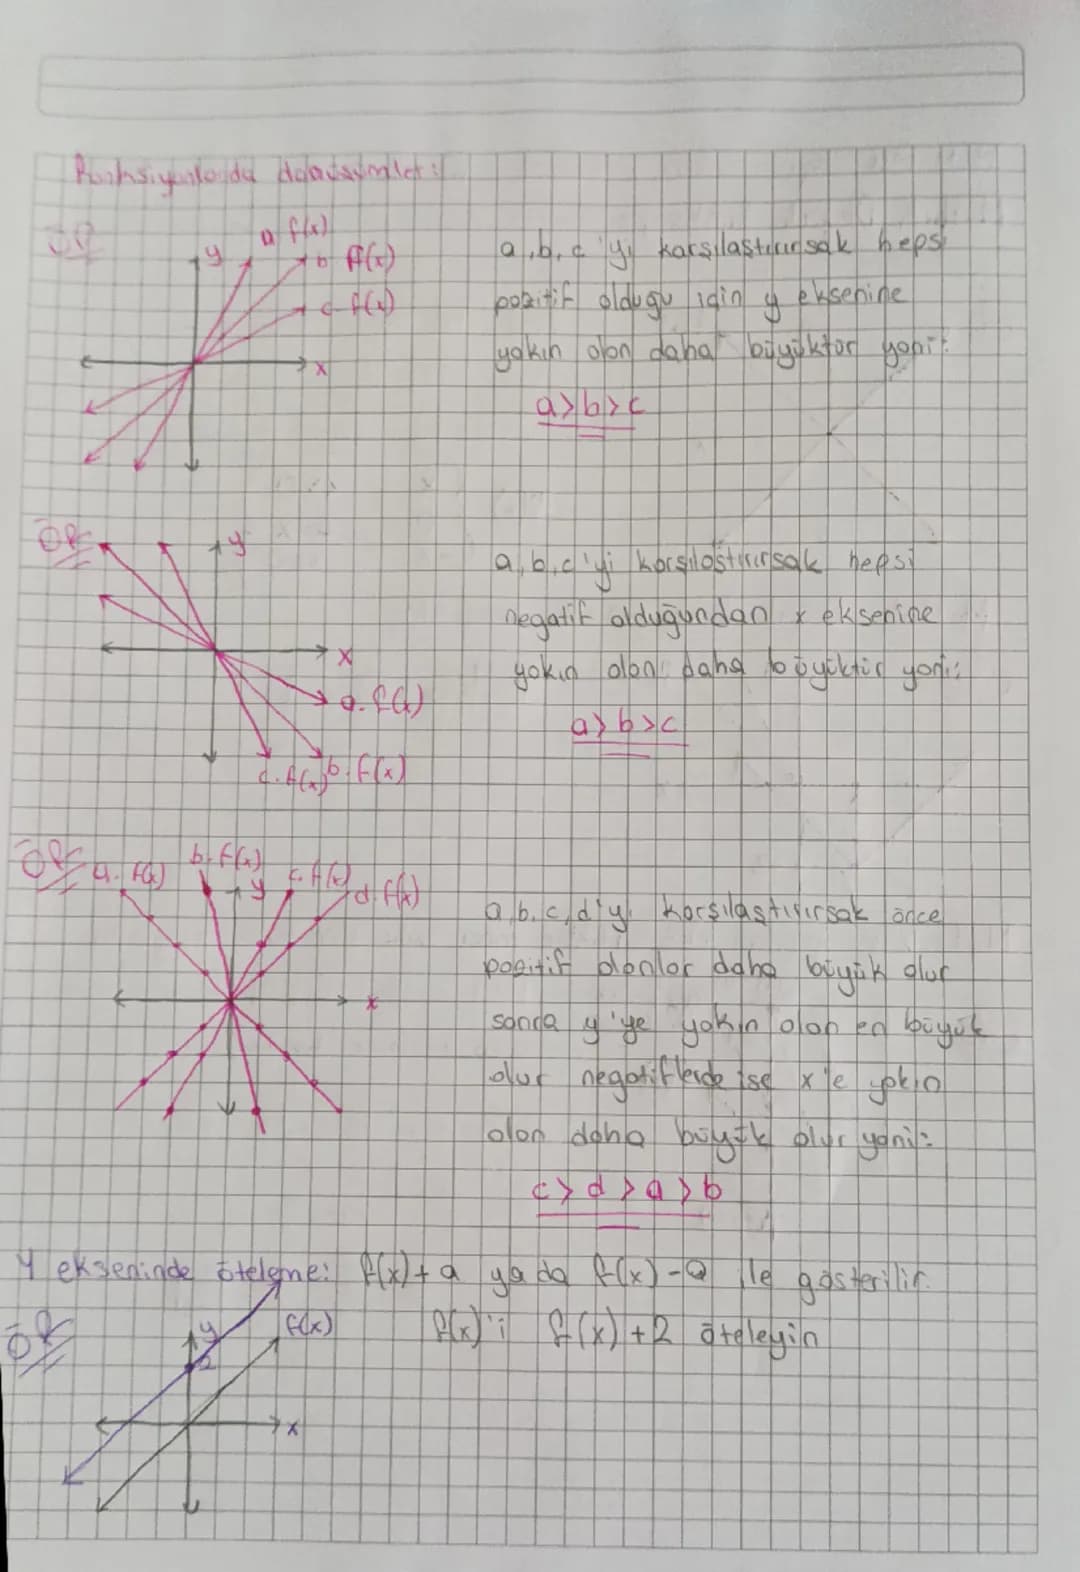 Fonksiyonlarda dönüşümler:
ÖR
y
a f(x)
b f(x)
c f(x)
x
a,b,c 'yi karşılaştırırsak hepsi
pozitif olduğu için y eksenine
yakın olan daha büyüktür yani:
a>b>c
ÖR
y
x
a. f(x)
b. f(x)
c. f(x)
a,b,c'yi karşılaştırırsak hepsi
negatif olduğundan x eksenine
yakın olan daha büyüktür yani:
a>b>c
ÖR
a. f(x)
b. f(x)
y
c. f(x)
d. f(x)
x
a,b,c,d'yi karşılaştırırsak önce
pozitif olanlar daha büyük olur
sonra y'ye yakın olan en büyük
olur negatiflerde ise x'e yakın
olan daha büyük olur yani:
c>d>a>b
Y ekseninde öteleme: f(x)+a ya da f(x)-a ile gösterilir.
ÖR
y
2
f(x)
x
f(x)'i f(x)+2 öteleyin